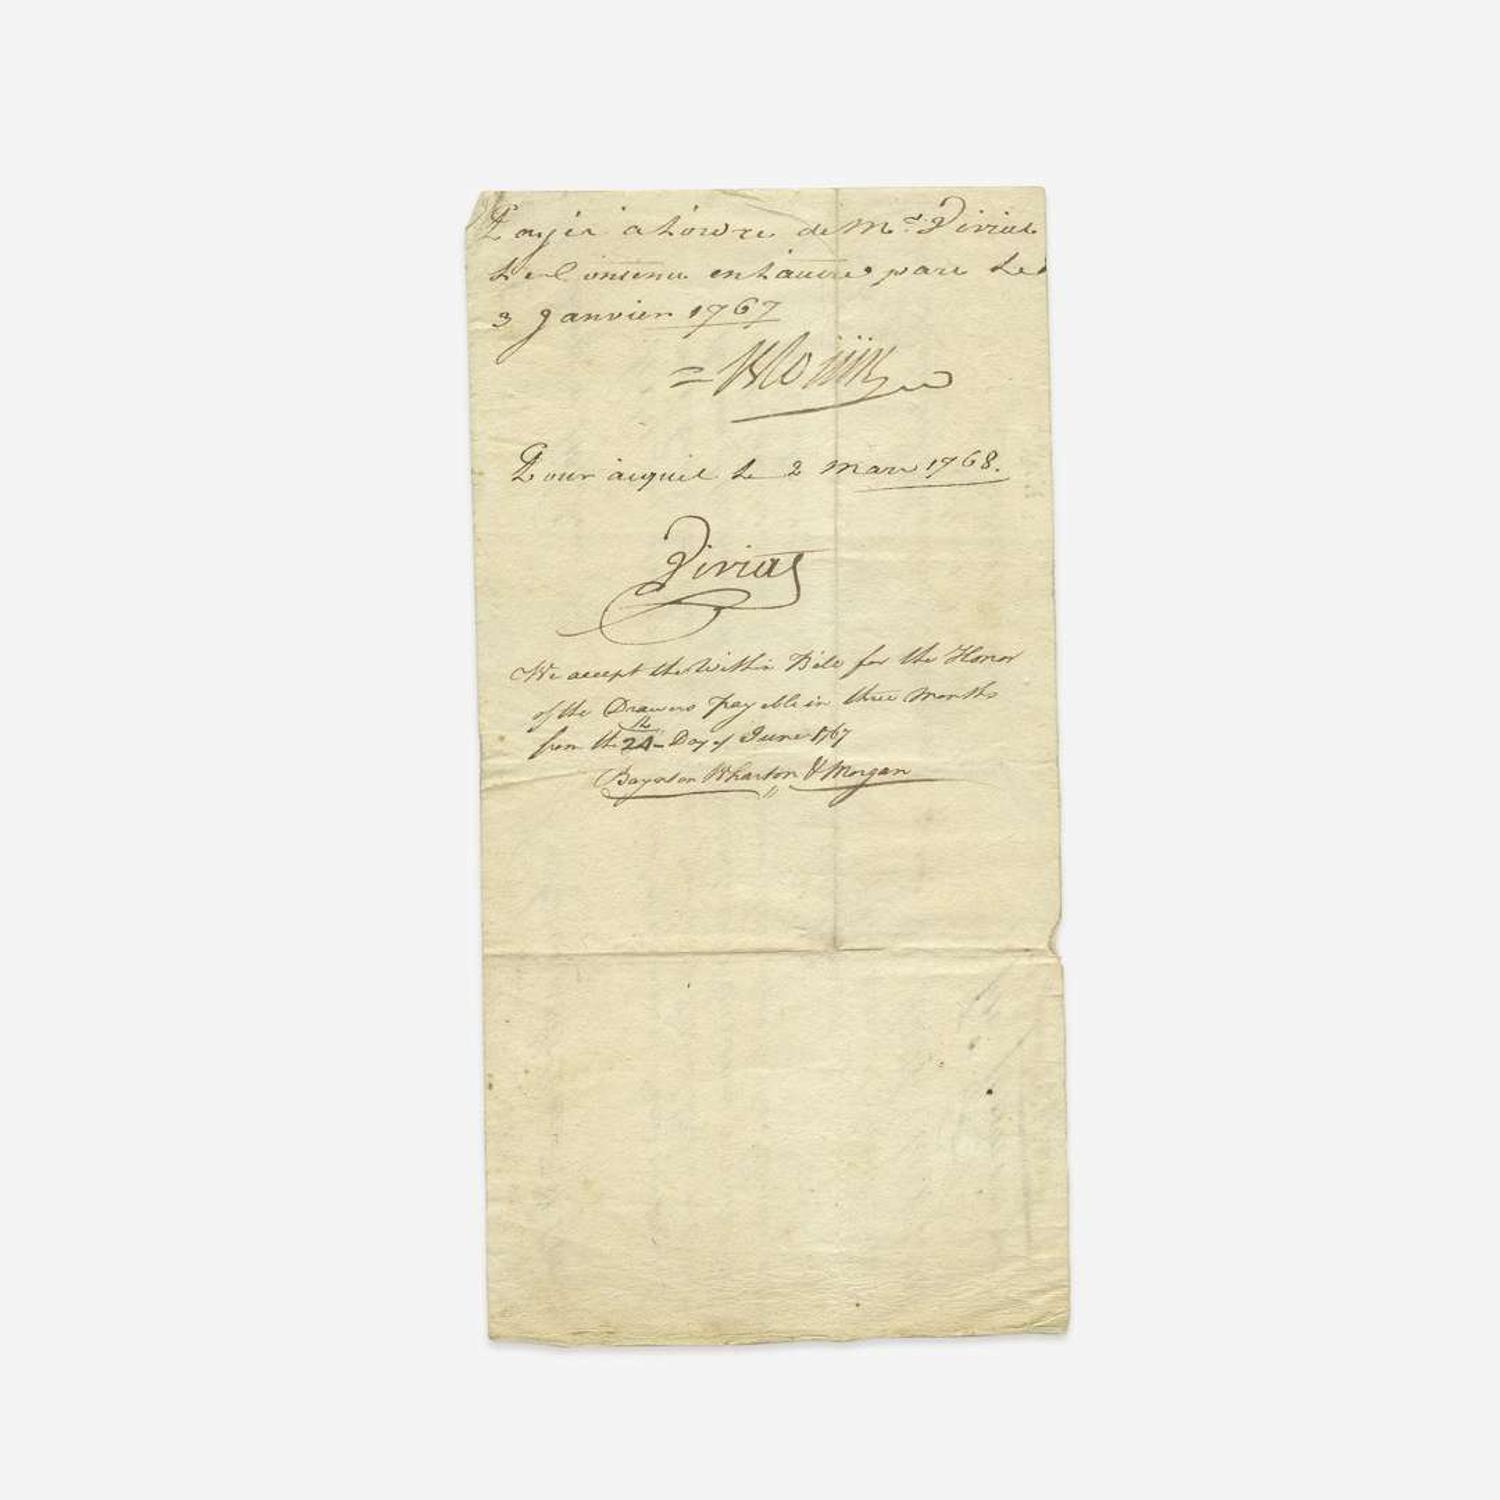 Payéz a Lordre de Mr. Viviat
Le Contenu en Lautre part Le
3 Janvier 1767
Pour acquit Le 2 Mars 1768.
Viviat
We accept the Within Bill for the Honor
of the Drawers payable in three Months
from the 24th Day of June 1767
Baynton Wharton & Morgan